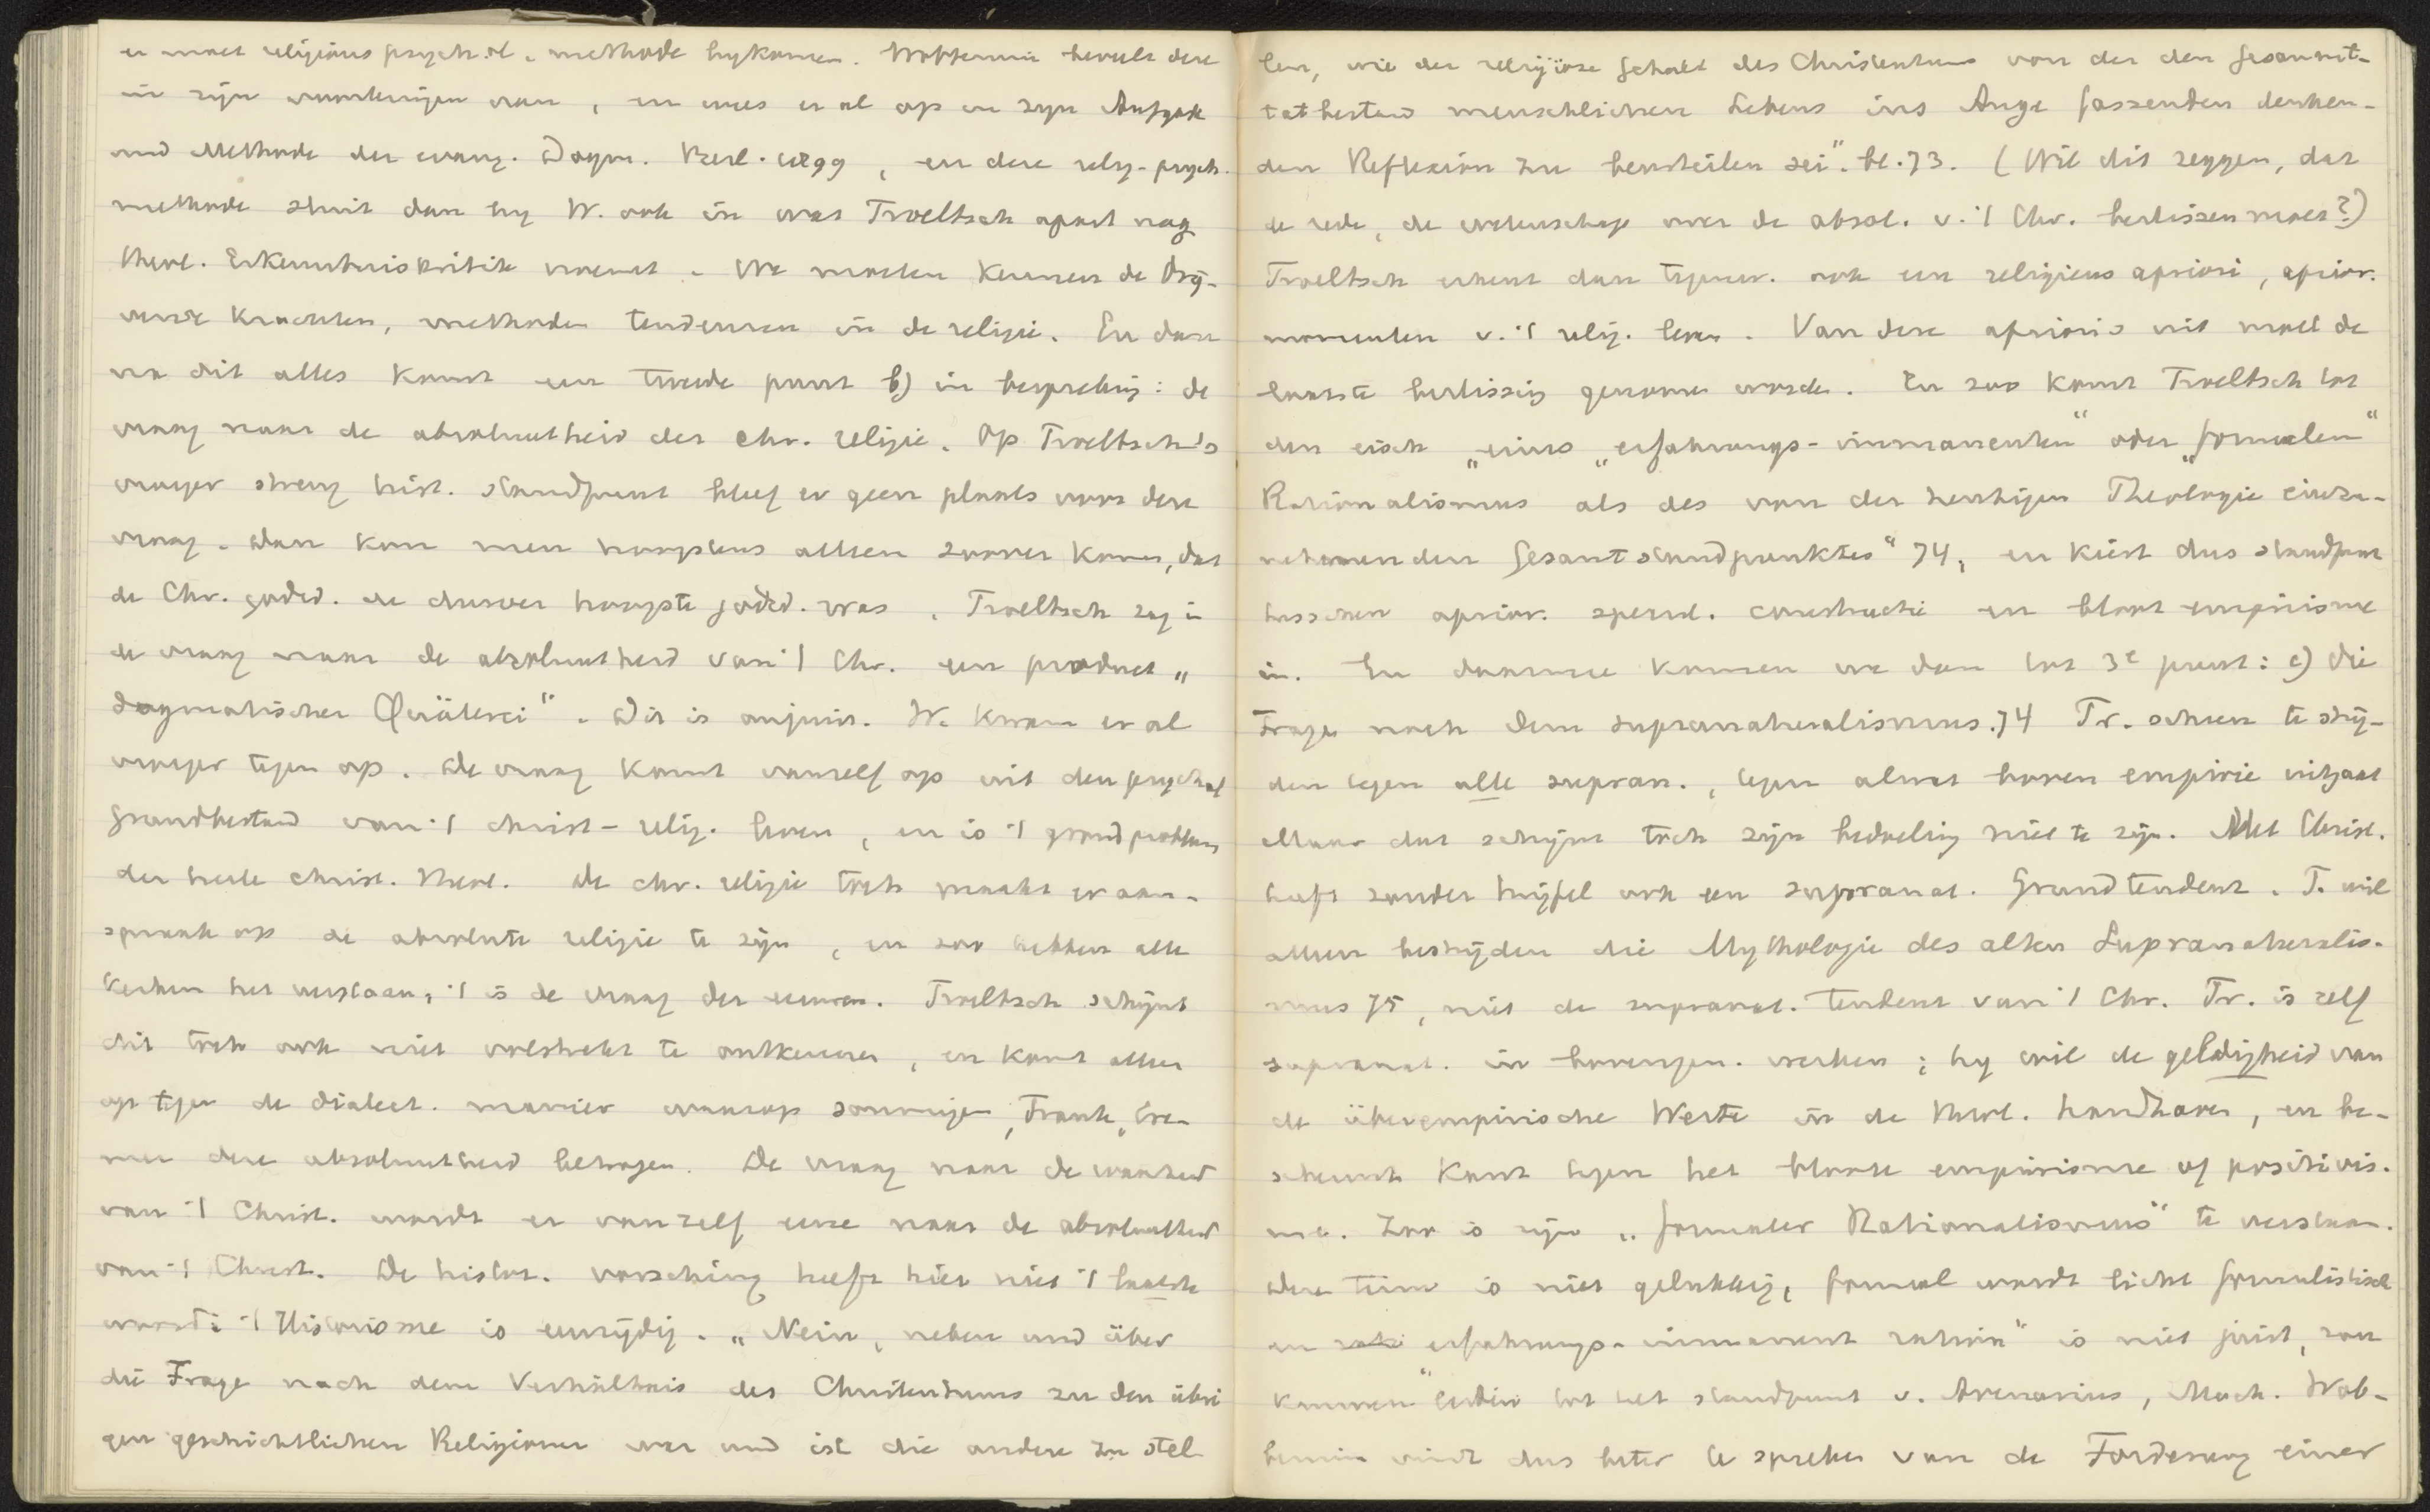 er moet religieus psychol. methode bykomen. Wobbermin beveelt deze
in zijn voorlezingen aan, en wees er al op in zijn Aufgabe
und Methode der evang. Dogm. Berl. 1899, en deze relig-psych.
methode sluit dan by W. ook in wat Troeltsch apart nog
theol. Erkenntniskritik noemt. We moeten kennen de drij-
vende krachten, methoden tendenzen in de religie. En dan
na dit alles komt een tweede punt b) in bespreking: de
vraag naar de absoluutheid der chr. religie. Op Troeltsch's
vroeger streng hist. standpunt bleef er geen plaats voor deze
vraag. Dan kon men hoogstens alleen zoover komen, dat
de Chr. godsd. de dusver hoogste godsd. was. Troeltsch zag in
de vraag naar de absoluutheid van 't Chr. een product „
dogmatischer Quälerei". Dit is onjuist. W. kwam er al
vroeger tegen op. De vraag komt vanzelf op uit den psychol
Grundbestand van 't christ-relig. leven, en is 't grondprobleem
der heele christ. theol. De chr. religie toch maakt er aan-
spraak op de absolute religie te zijn, en zoo hebben alle
kerken het verstaan, 't is de vraag der eeuwen. Troeltsch schijnt
dit toch ook niet volstrekt te ontkennen, en komt alleen
op tegen de dialect. manier waarop sommigen, Frank, Cre-
mer deze absoluutheid betoogen. De vraag naar de waarheid
van 't Christ. wordt er vanzelf eene naar de absoluutheid
van 't Christ. De histor. vorsching heeft hier niet 't laatste
woord: 't Historisme is eenzijdig. „Nein, neben und über
die Frage nach dem Verhältnis des Christentums zu den übri
gen geschichtlichen Religionen war und ist die andere zu stel-
len, wie der religiöse Gehalt des Christentums von der den Gesammt-
tatbestand menschlichen Lebens ins Auge fassenden denken-
den Reflexion zu beurteilen sei". bl. 73. (Wil dit zeggen, dat
de rede, de wetenschap over de absol. v. 't Chr. beslissen moet?)
Troeltsch erkent dan tegenw. ook een religieus apriori, aprior.
momenten v. 't relig. leven. Van deze apriori's uit moet de
laatste beslissing genomen worden. En zoo komt Troeltsch tot
den eisch „eines „erfahrungs-immanenten" oder „formalen"
Rationalismus als des von der heutigen Theologie einzu-
nehmenden Gesamtstandpunktes" 74, en kiest dus standpunt
tusschen aprior. specul. constructie en bloot empirisme
in. En daarmee komen we dan tot 3e punt: c) die
Frage nach dem Supranaturalismus. 74 Tr. scheen te strij-
den tegen alle supran., tegen alwat boven empirie uitgaat
Maar dat schijnt toch zijn bedoeling niet te zijn. Met Christ.
heeft zonder twijfel ook een supranat. Grundtendenz. T. wil
alleen bestrijden die Mythologie des alten Supranaturalis-
mus 75, niet de supranat. tendenz van 't Chr. Tr. is zelf
supranat. in bovengen. werken; hy wil de geldigheid van
de überempirische Werte in de theol. handhaven, en be-
schermt Kant tegen het bloote empirisme of positivis-
me. Zoo is zijn „formaler Rationalismus" te verstaan.
Deze term is niet gelukkig, formal wordt licht formalistisch
en erfahrungs-immanent ration" is niet juist, zou
kunnen leiden tot het standpunt v. Avenarius, Mach. Wob-
bermin vindt dus beter te spreken van de Forderung einer